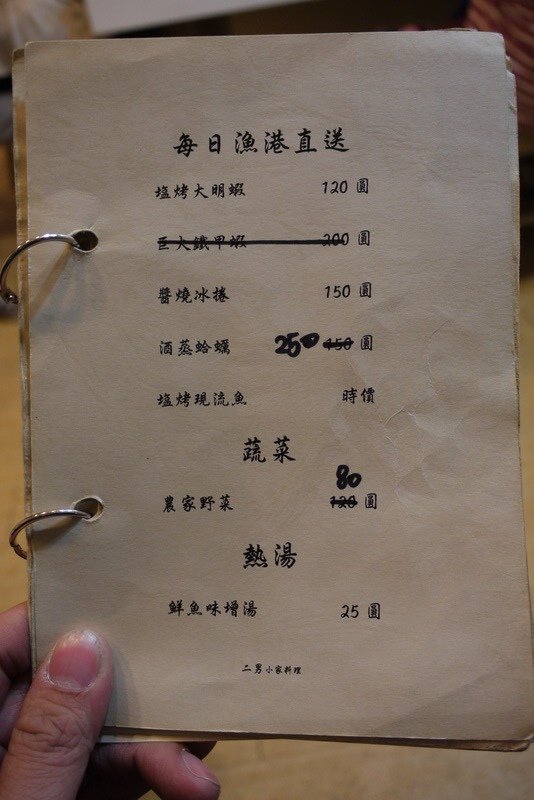 每日漁港直送
塩烤大明蝦 120 圓
巨大鐵甲蝦 200 圓
醬燒冰捲 150 圓
酒蒸蛤蠣 250 150 圓
塩烤現流魚 時價
蔬菜
80
農家野菜 120 圓
熱湯
鮮魚味增湯 25 圓
二男小家料理